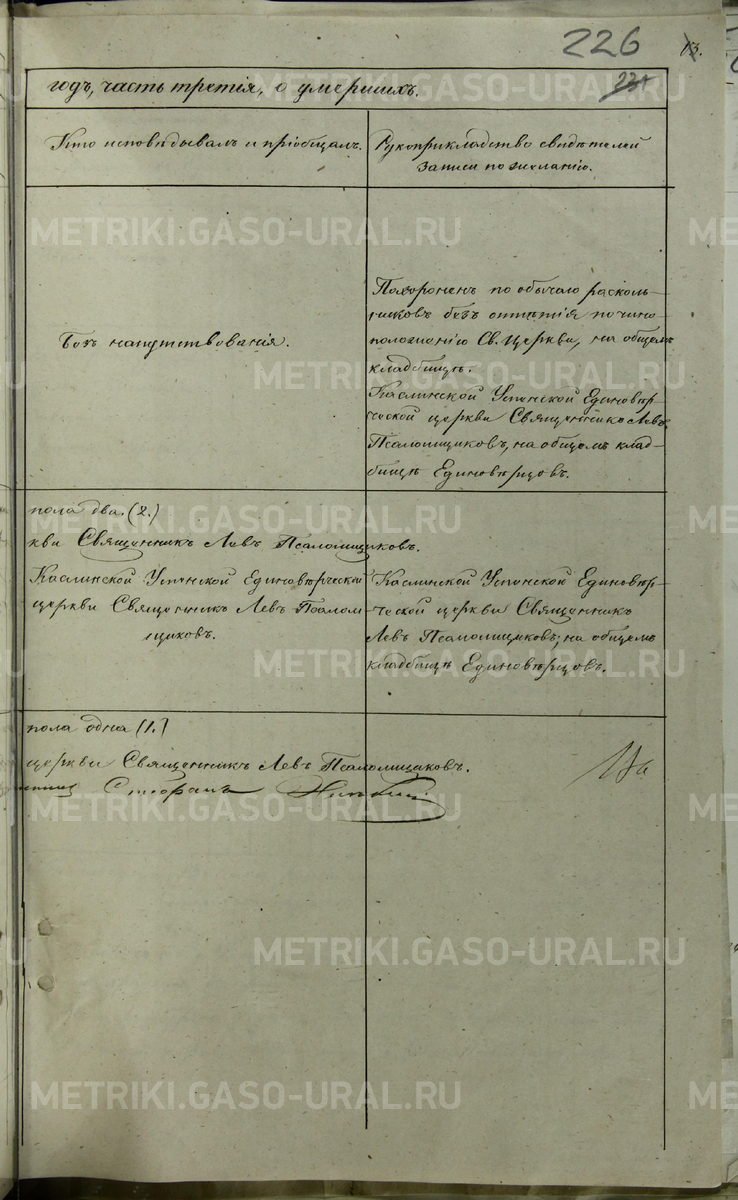 226
13.
годъ, часть третія, о умершихъ.
231
Кто исповѣдывалъ и пріобщалъ.
Рукоприкладство свидѣтелей
записи по желанію.
Безъ напутствованія.
Похороненъ по обычаю расколь-
никовъ безъ отпѣтія по чино-
положенію Св. Церкви, на общемъ
кладбищѣ.
Каслинской Успенской Единовѣр-
ческой церкви Священникъ Левъ
Псаломщиковъ, на общемъ клад-
бищѣ Единовѣрцовъ.
пола два. (2.)
кви Священникъ Левъ Псаломщиковъ.
Каслинской Успенской Единовѣрческой
церкви Священникъ Левъ Псалом
щиковъ.
Каслинской Успенской Единовѣр-
ческой церкви Священникъ
Левъ Псаломщиковъ, на общемъ
кладбищѣ Единовѣрцовъ.
пола одна (1.)
церкви Священникъ Левъ Псаломщиковъ.
Стефанъ
METRIKI.GASO-URAL.RU